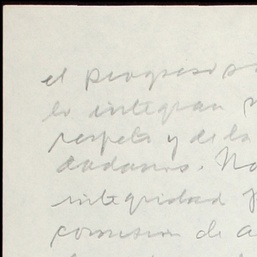 el progreso
lo integran
respeto y de la
dadanos. No
integridad
comision de a